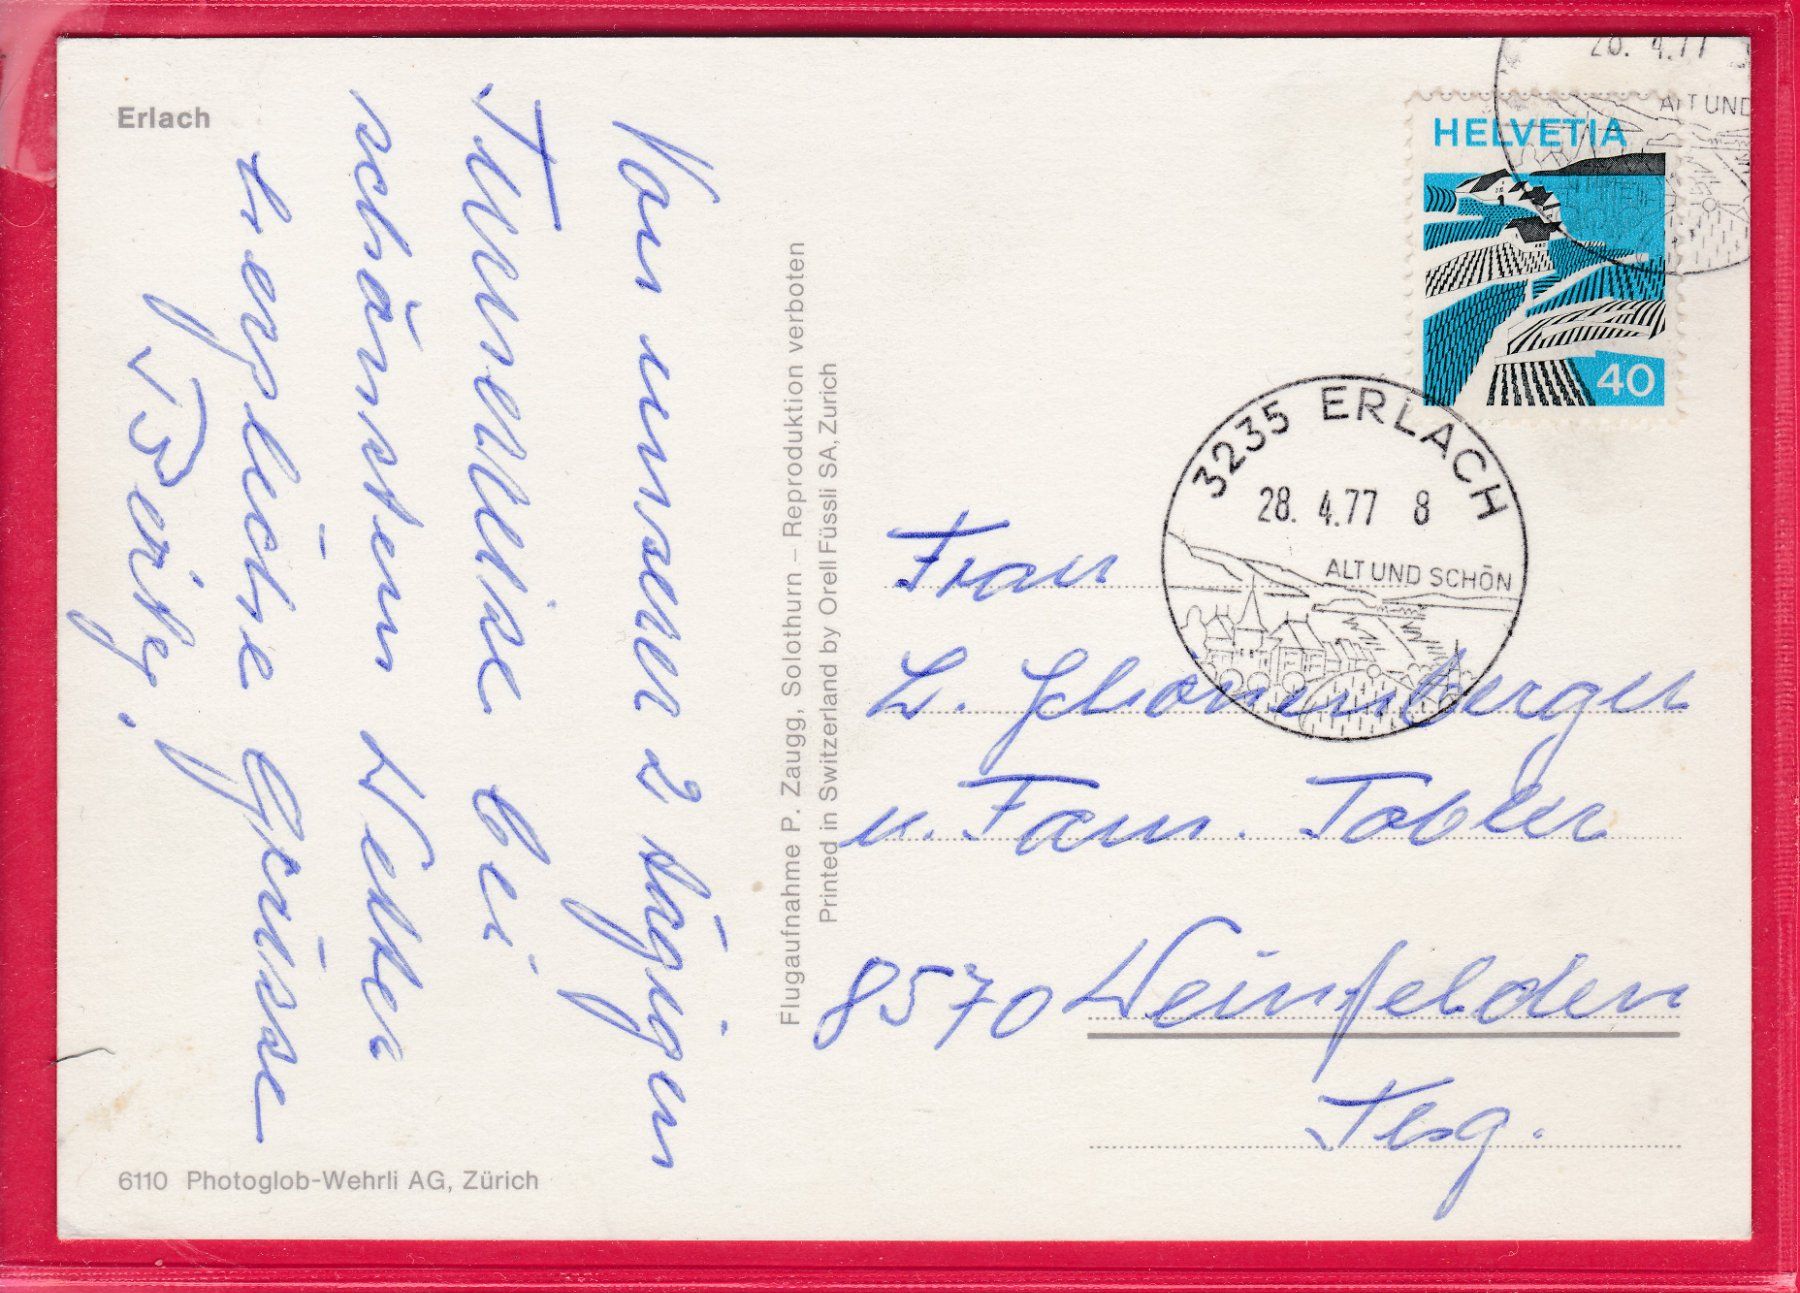 Erlach
Von unserer 2 tägigen
Turnerreise bei
schönstem Wetter
herzliche Grüsse
Flugaufnahme P. Zaugg, Solothurn – Reproduktion verboten
Printed in Switzerland by Orell Füssli SA, Zürich
6110 Photoglob-Wehrli AG, Zürich
28. 4.77
ALT UND
HELVETIA
40
3235 ERLACH
28. 4.77 8
ALT UND SCHÖN
Frau
L. Schönenberger
u. Fam. Tobler
8570 Weinfelden